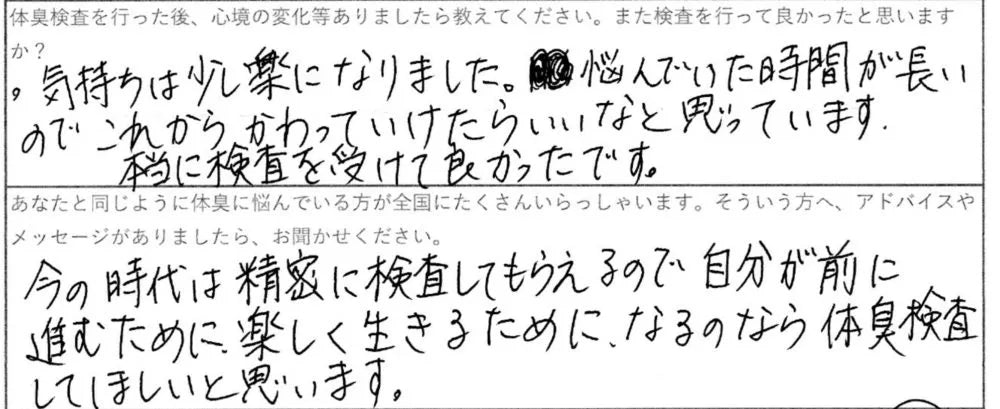 体臭検査を行った後、心境の変化等ありましたら教えてください。また検査を行って良かったと思います
か？
、気持ちは少し楽になりました。悩んでいた時間が長い
のでこれからかわっていけたらいいなと思っています.
本当に検査を受けて良かったです。
あなたと同じように体臭に悩んでいる方が全国にたくさんいらっしゃいます。そういう方へ、アドバイスや
メッセージがありましたら、お聞かせください。
今の時代は精密に検査してもらえるので自分が前に
進むために、楽しく生きるために、なるのなら体臭検査
してほしいと思います。